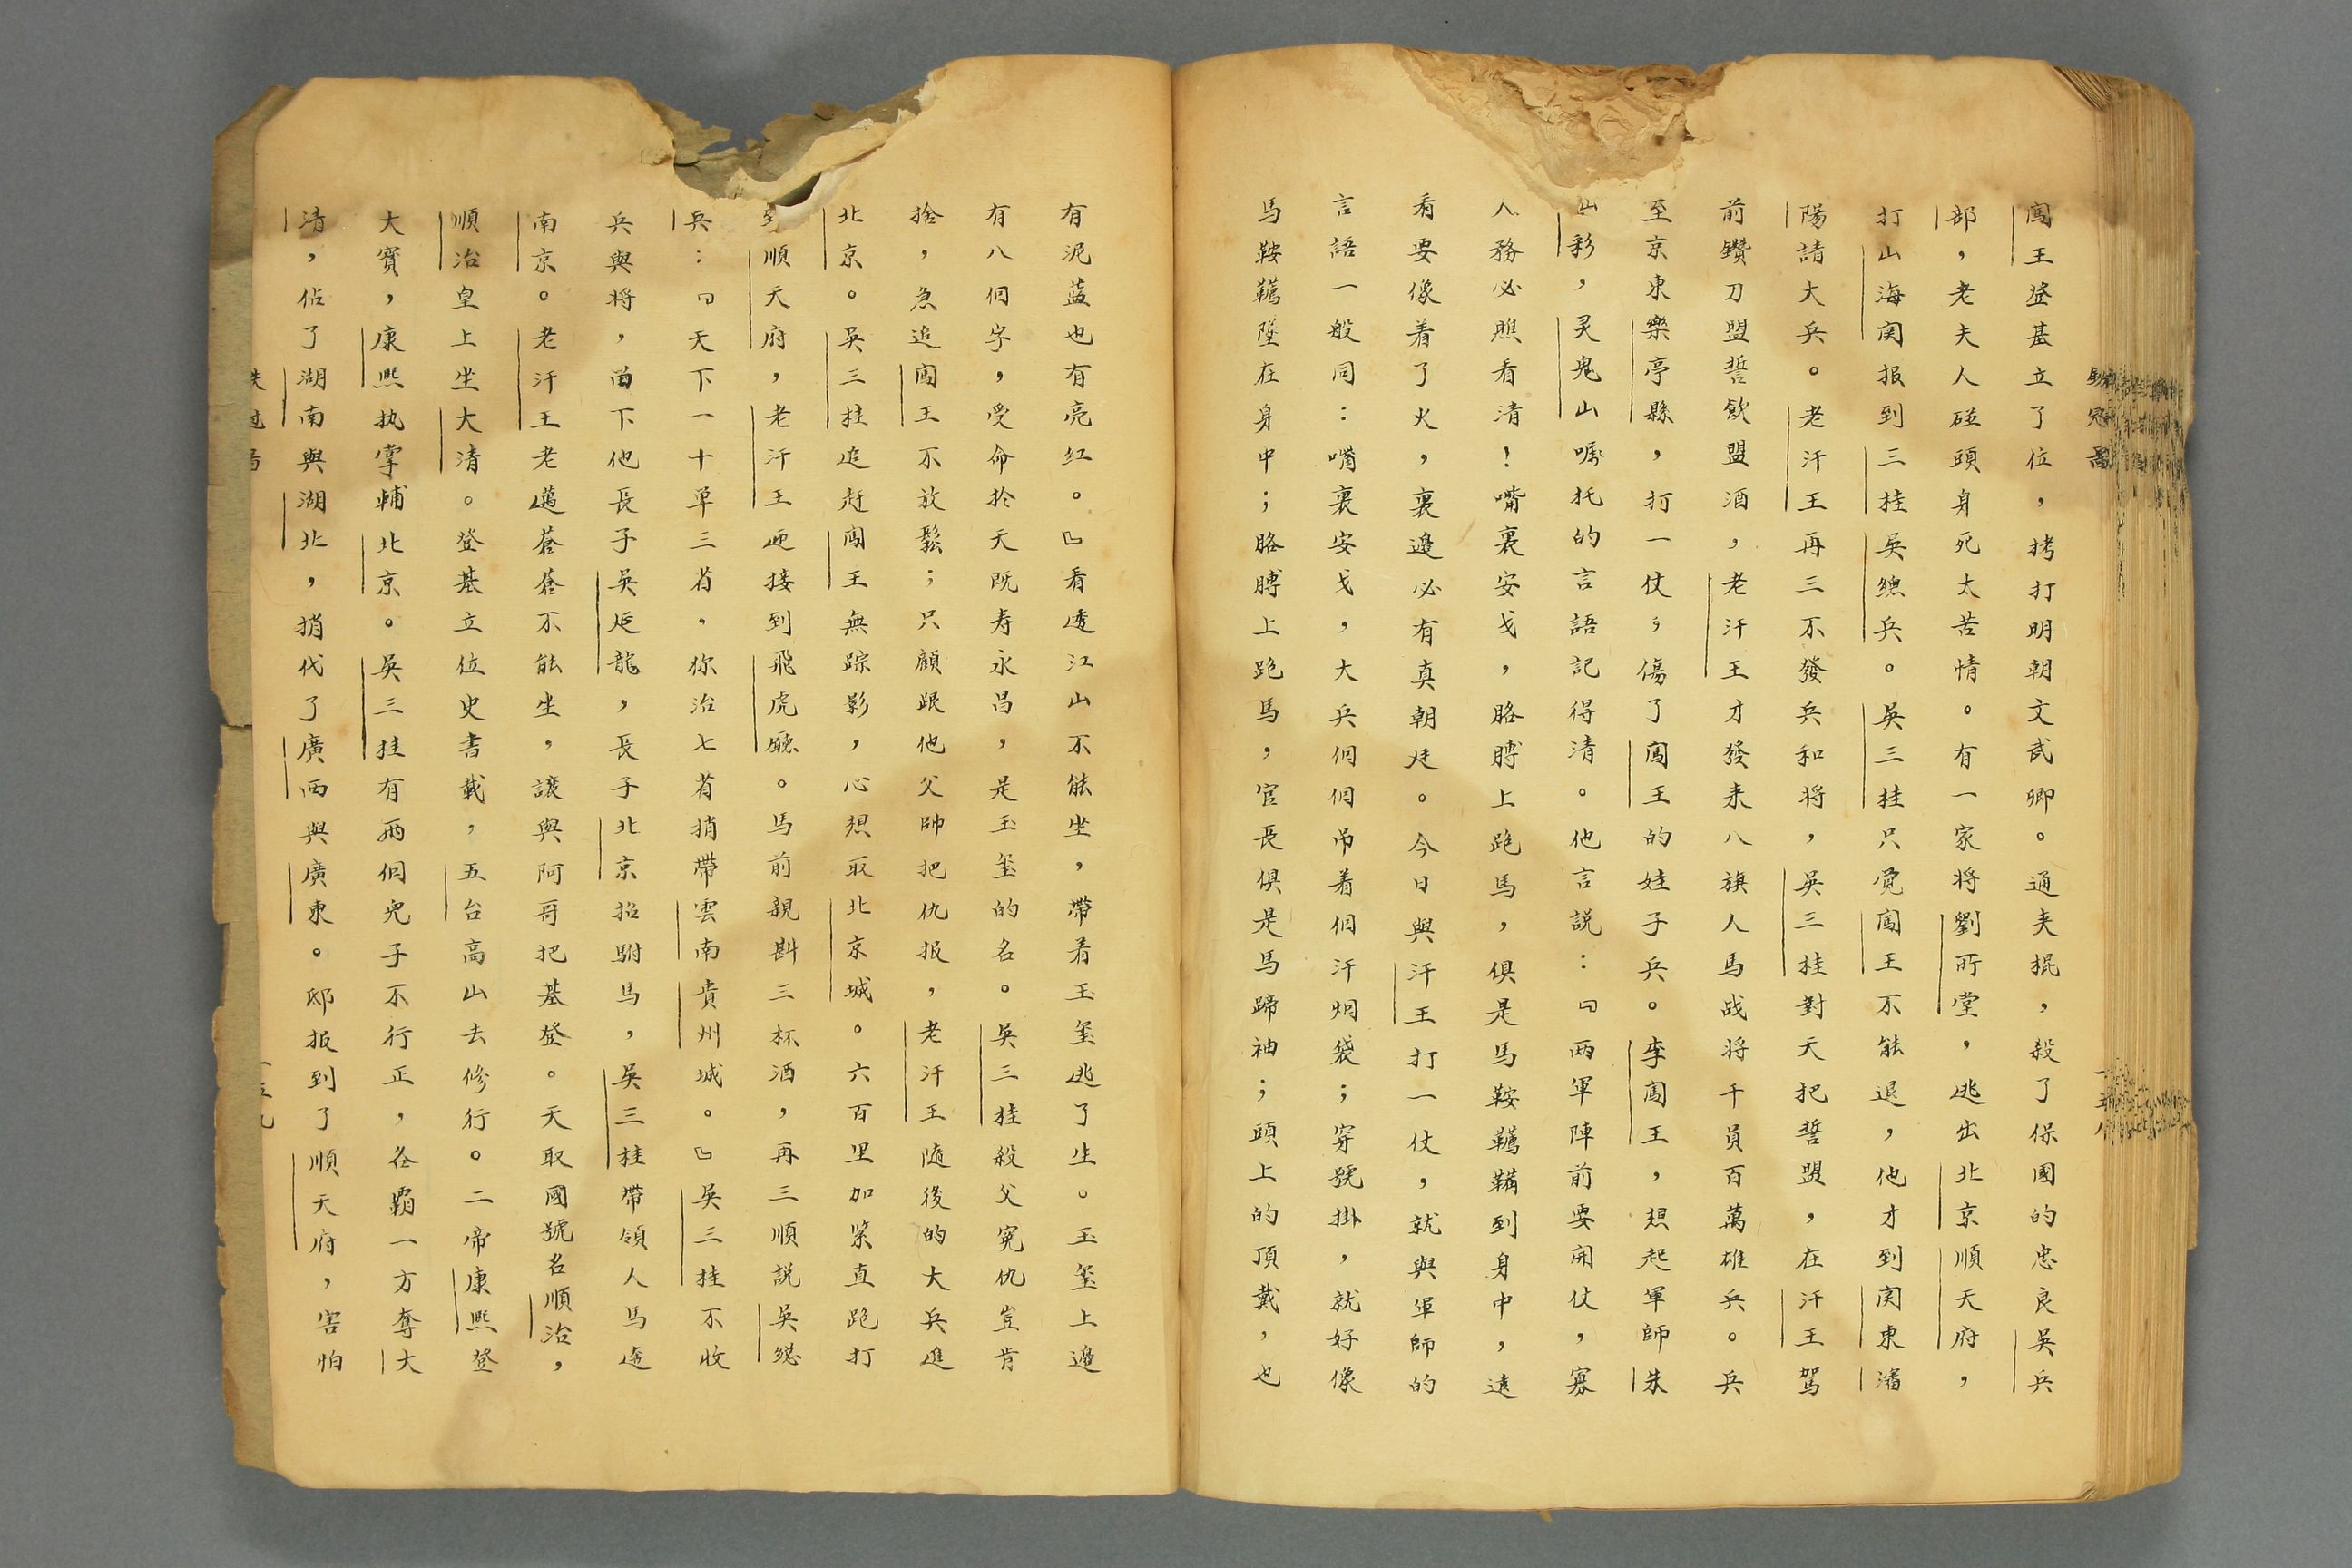 闖王登基立了位，拷打明朝文武卿。通夹棍，殺了保國的忠良吳兵
部，老夫人碰頭身死太苦情。有一家将劉所堂，逃出北京順天府，
打山海関报到三桂吳總兵。吳三桂只覺闖王不能退，他才到関東瀋
陽請大兵。老汗王再三不發兵和将，吳三桂對天把誓盟，在汗王駕
前鑽刀盟誓飲盟酒，老汗王才發来八旗人馬战将千員百萬雄兵。兵
至京東樂亭縣，打一仗，傷了闖王的娃子兵。李闖王，想起軍師朱
彩，灵鬼山嘱托的言語記得清。他言説：『两軍陣前要開仗，寡
人務必照看清！嘴裏安戈，胳膊上跑馬，俱是馬鞍韉鞴到身中，遠
看要像着了火，裏邉必有真朝廷。今日與汗王打一仗，就與軍師的
言語一般同：嘴裏安戈，大兵個個吊着個汗烟袋；穿號掛，就好像
馬鞍韉墜在身中；胳膊上跑馬，官長俱是馬蹄袖；頭上的頂戴，也
有泥蓝也有亮紅。』看透江山不能坐，帶着玉玺逃了生。玉玺上邉
有八個字，受命於天既寿永昌，是玉玺的名。吳三桂殺父寃仇豈肯
捨，急追闖王不放鬆；只顧跟他父帥把仇报，老汗王隨後的大兵進
北京。吳三桂追赶闖王無踪影，心想取北京城。六百里加紧直跑打
到順天府，老汗王迎接到飛虎廳。馬前親斟三杯酒，再三順説吳總
兵：『天下一十单三省，你治七省捎帶雲南貴州城。』吳三桂不收
兵與将，畄下他長子吳延龍，長子北京招駙馬，吳三桂帶領人馬逩
南京。老汗王老邁蒼蒼不能坐，讓與阿哥把基登。天取國號名順治，
順治皇上坐大清。登基立位史書載，五台高山去修行。二帝康熙登
大寳，康熙执掌輔北京。吳三桂有两個兒子不行正，各霸一方奪大
清，佔了湖南與湖北，捎代了廣西與廣東。邸报到了順天府，害怕